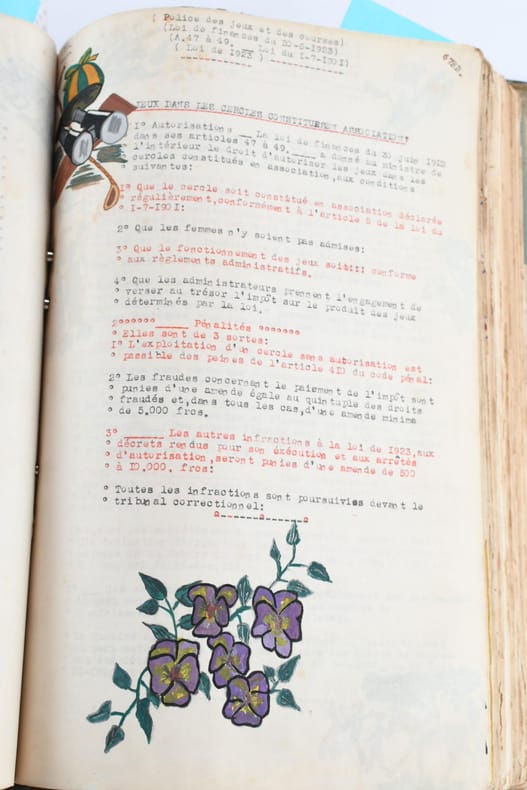 ( Police des jeux et des courses)
(Loi de finances du 30-6-1923)
(A.47 à 49. _ Loi du 1-7-1901)
( Loi de 1923 )
JEUX DANS LES CERCLES CONSTITUES EN ASSOCIATION:
1° Autorisations __ La loi de finances du 30 juin 1923
dans ses articles 47 à 49.____ a donné au ministre de
° l'intérieur le droit d'autoriser les jeux dans les
° cercles constitués en association,aux conditions
° suivantes:
1° Que le cercle soit constitué en association déclarée
° régulièrement,conformément à l'article 5 de la loi du
° 1-7-1901:
2° Que les femmes n'y soient pas admises:
3° Que le fonctionnement des jeux soit conforme
° aux règlements administratifs.
4° Que les administrateurs prennent l'engagement de
° verser au trésor l'impôt sur le produit des jeux
° déterminés par la loi.
2°°°°°°°_____ Pénalités °°°°°°°
° Elles sont de 3 sortes:
1° L'exploitation d'un cercle sans autorisation est
° passible des peines de l'article 410 du code pénal:
2° Les fraudes concernant le paiement de l'impôt sont
° punies d'une amende égale au quintuple des droits
° fraudés et,dans tous les cas,d'une amende minima
° de 5.000 frcs.
3° ______ Les autres infractions à la loi de 1923,aux
° décrets rendus pour son éxécution et aux arrêtés
° d'autorisation,seront punies d'une amende de 500
° à 10.000. frcs:
° Toutes les infractions sont poursuivies devant le
° tribunal correctionnel: